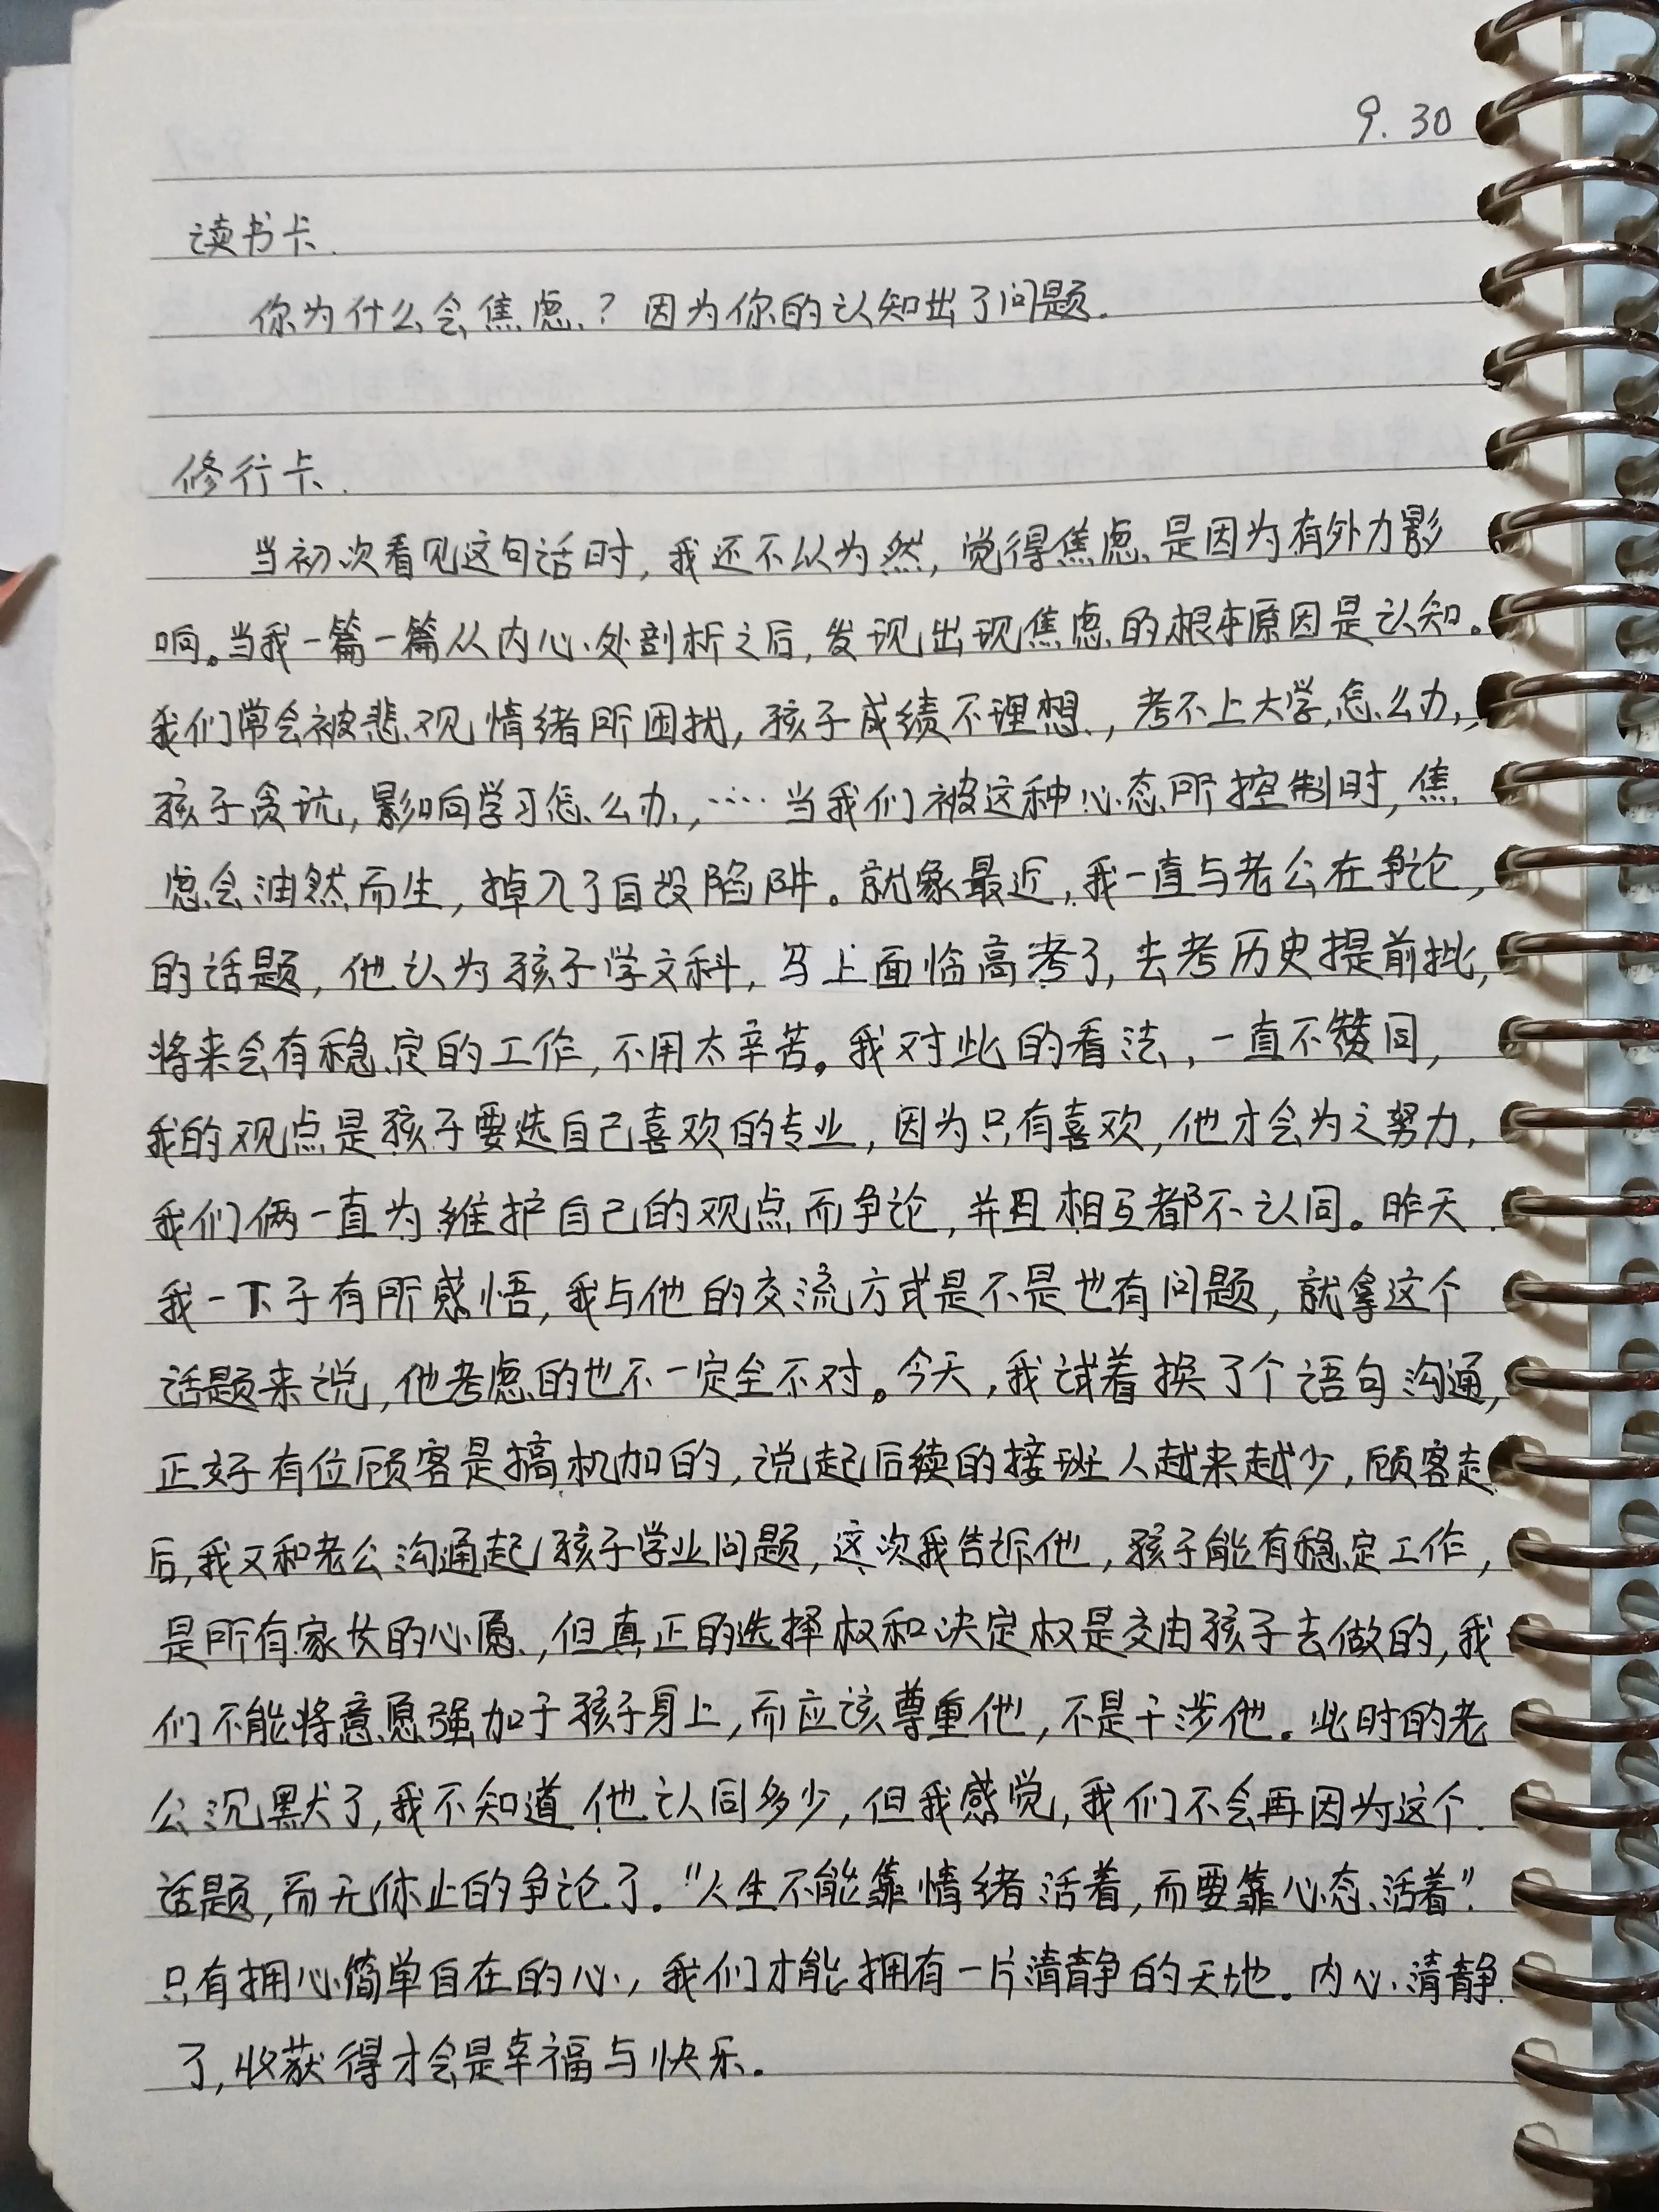 9.30
读书卡.
你为什么会焦虑？因为你的认知出了问题.
修行卡.
当初次看见这句话时,我还不以为然,觉得焦虑是因为有外力影
响。当我一篇一篇从内心处剖析之后,发现出现焦虑的根本原因是认知。
我们常会被悲观情绪所困扰,孩子成绩不理想,考不上大学怎么办,
孩子贪玩,影响学习怎么办,……当我们被这种心态所控制时,焦
虑会油然而生,掉入了自设陷阱。就象最近,我一直与老公在争论,
的话题,他认为孩子学文科,马上面临高考了,去考历史提前批,
将来会有稳定的工作,不用太辛苦。我对此的看法,一直不赞同,
我的观点是孩子要选自己喜欢的专业,因为只有喜欢,他才会为之努力,
我们俩一直为维护自己的观点而争论,并且相互都不认同。昨天
我一下子有所感悟,我与他的交流方式是不是也有问题,就拿这个
话题来说,他考虑的也不一定全不对。今天,我试着换了个语句沟通,
正好有位顾客是搞机加的,说起后续的接班人越来越少,顾客走
后,我又和老公沟通起孩子学业问题,这次我告诉他,孩子能有稳定工作,
是所有家长的心愿,但真正的选择权和决定权是交由孩子去做的,我
们不能将意愿强加于孩子身上,而应该尊重他,不是干涉他。此时的老
公沉默了,我不知道他认同多少,但我感觉,我们不会再因为这个
话题,而无休止的争论了。“人生不能靠情绪活着,而要靠心态活着”.
只有拥心简单自在的心,我们才能拥有一片清静的天地。内心清静
了,收获得才会是幸福与快乐.